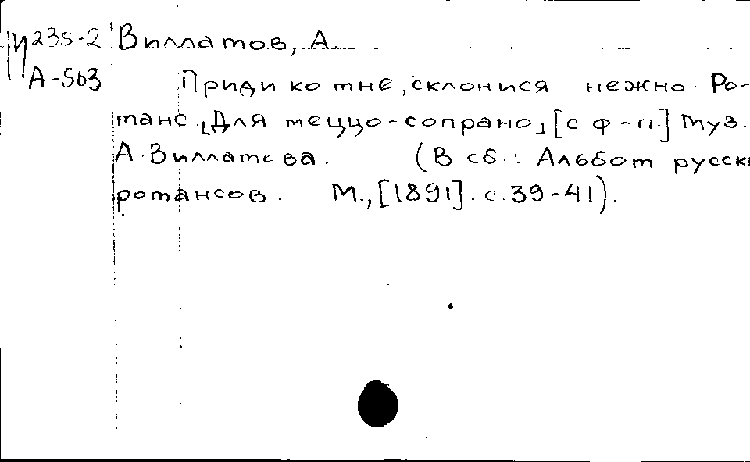 И 235-2 Виллатов, А.
А-503 Приди ко мне, склонися нежно. Ро-
манс. Для меццо-сопрано, [с ф-п.] Муз.
А. Виллатова. (В сб.: Альбом русски
романсов. М., [1891]. с. 39-41).